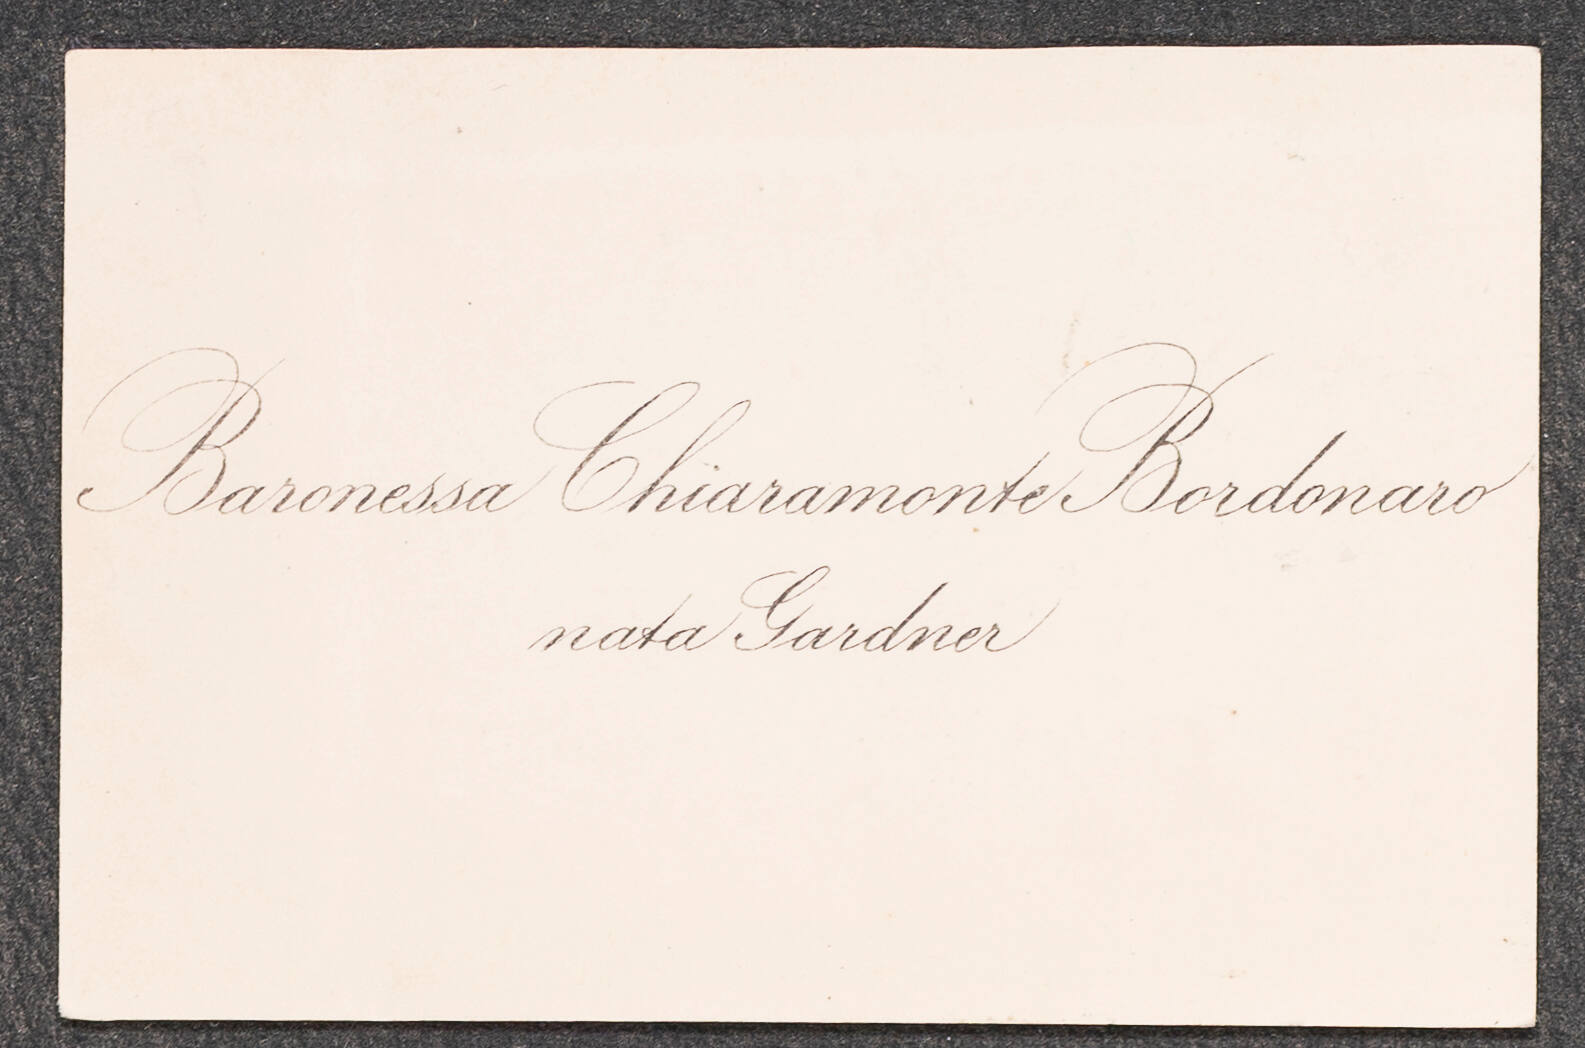 Baronessa Chiaramonte Bordonaro
nata Gardner